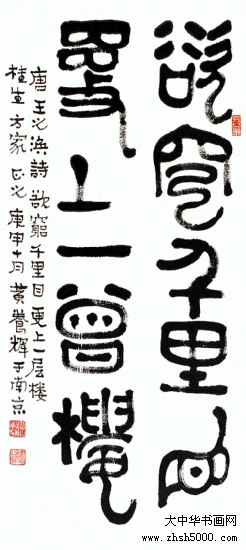 欲窮千里目
更上一曾樓
唐王之渙詩欲窮千里目更上一层楼
桂生方家正之庚申十月黄養輝于南京
大中华书画网
www.zhsh5000.com